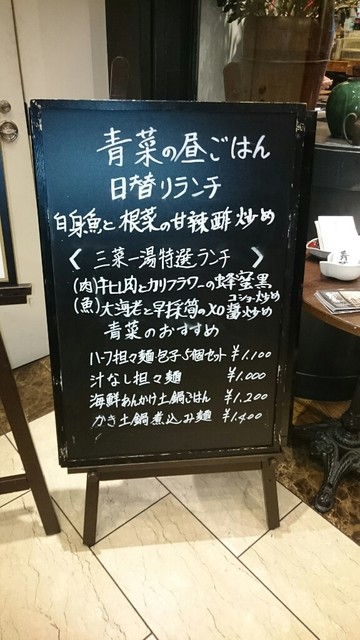 青菜の昼ごはん
日替りランチ
白身魚と根菜の甘辣酢炒め
《三菜一湯特選ランチ》
(肉)牛ヒレ肉とカリフラワーの蜂蜜黒コショー炒め
(魚)大海老と早採筍のXO醤炒め
青菜のおすすめ
ハーフ担々麺 包子5個セット ¥1.100
汁なし担々麺 ¥1.000
海鮮あんかけ土鍋ごはん ¥1.200
かき土鍋煮込み麺 ¥1.400